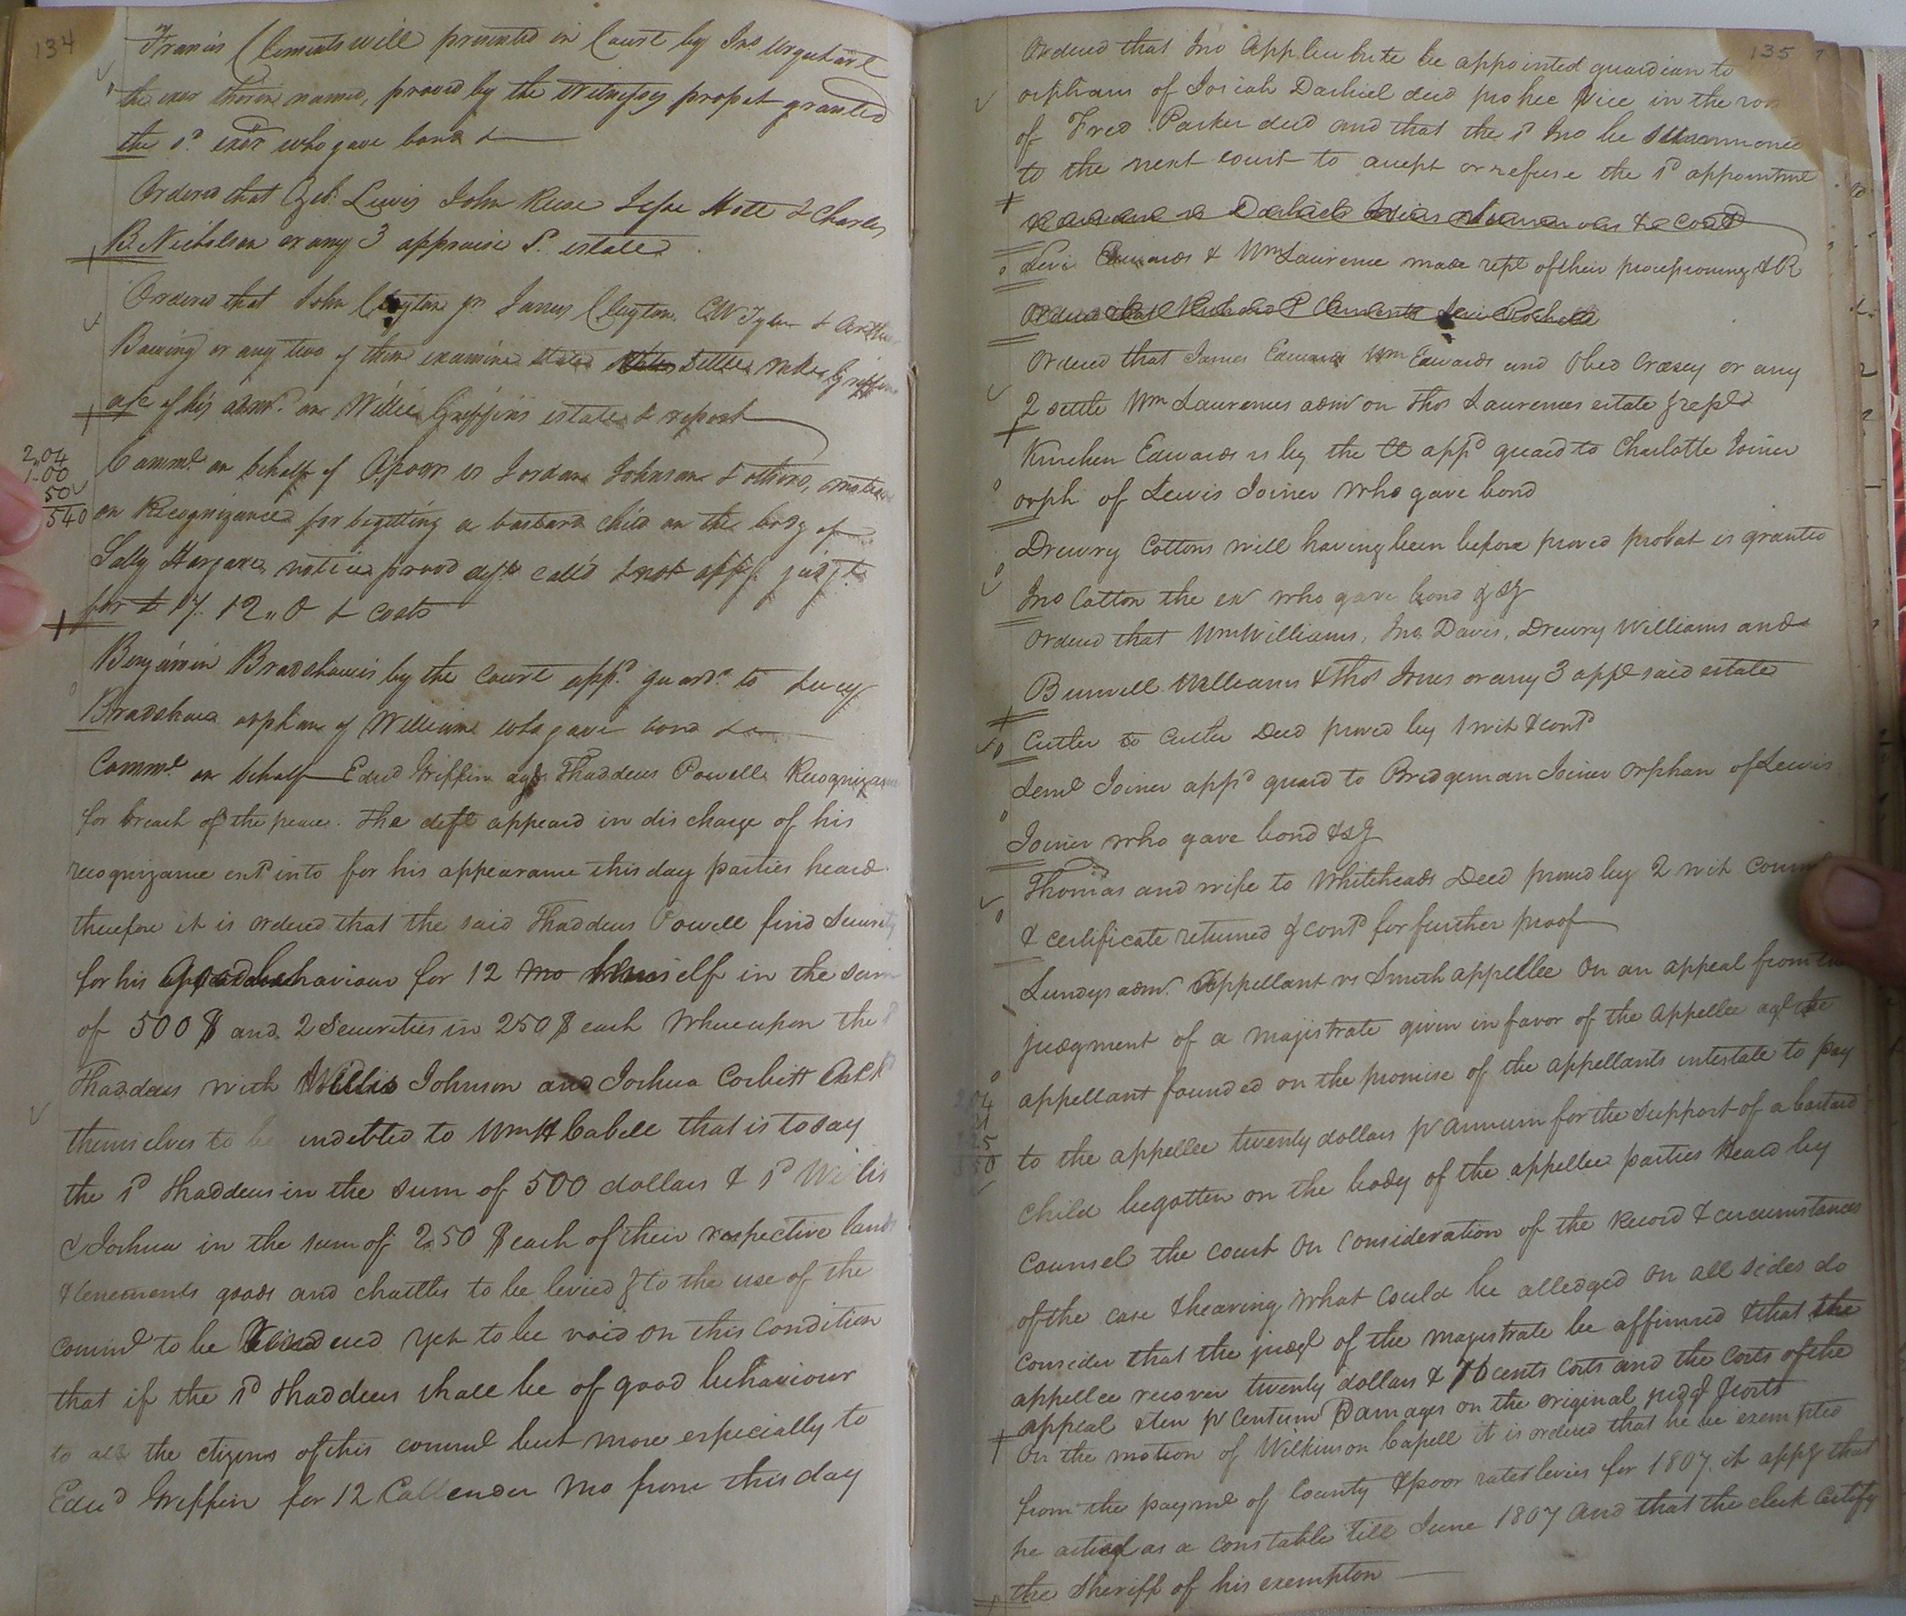 134
Francis Clements will presented in Court by Jno Urquhart
the exer therein named, proved by the witnesses probat granted
the sd exer who gave bond &
Ordered that Lewis John Rease Jesse Holt & Charles
B. Nicholson or any 3 appraise sd estate
Ordered that John Clayton jr James Clayton CW Tyler &
or any two of them examine settle Griffin
a/c of his admr on Willie Griffins estate & report
2,,04
1,,00
50
540
Commd on behalf of Jordan Johnson & others, motion
on Recognizance for begetting a bastard child on the body of
Sally notice proved deft calld & not appg judgt
for 12,,0 & costs
Benjamin Bradshaw is by the court appd guard to Lucy
Bradshaw orphan of William who gave bond &
Commd on behalf Edwd Griffin agt Thaddeus Powell Recognizance
for breach of the peace. The deft appeard in discharge of his
recognizance entd into for his appearance this day parties heard
therefore it is ordered that the said Thaddeus Powell find Security
for his Good behaviour for 12 mo himself in the sum
of 500 $ and 2 Securities in 250 $ each Whereupon the
Thaddeus with Willis Johnson and Joshua Corbitt Ackd
themselves to be indebted to Wm H Cabell that is to say
the sd Thaddeus in the sum of 500 dollars & sd Willis
& Joshua in the sum of 250 $ each of their respective lands
& tenements goods and chattles to be levied & to the use of the
commd to be rendered yet to be void on this condition
that if the sd Thaddeus shall be of good behaviour
to all the citizens of this commd but more especially to
Edwd Griffin for 12 Callender mo from this day
135
Ordered that Jno Applewhite be appointed guardian to
orphans of Josiah Dashiel decd pro hec Vice in the room
of Fred Parker decd and that the sd Jno be summoned
to the next court to accept or refuse the sd appointment
Levi Edwards & Wm Laurence made rept of their processioning & R
Ordered that Richard P Clements Levi
Ordered that James Edwards Wm Edwards and Obed Crasey or any
2 settle Wm Laurences admr on Thos Laurences estate & rept
Kinchen Edwards is by the Ct appd guard to Charlotte Joiner
orph of Lewis Joiner who gave bond
Drewry Cottons will having been before proved probat is granted
Jno Cotton the exr who gave bond & Sy
Ordered that Wm Williams, Jno Davis, Drewry Williams and
Burwell Williams & Thos Jones or any 3 appr said estate
Cutler to Cutler Deed proved by 1 wit & contd
Leml Joiner appd guard to Bridgeman Joiner orphan of Lewis
Joiner who gave bond & sy
Thomas and wife to Whiteheads Deed proved by 2 wit
& certificate returned & contd for further proof
Lundys admr. Appellant vs Smith appellee On an appeal from the
judgment of a magistrate given in favor of the appellee agt the
appellant founded on the promise of the appellants intestate to pay
to the appellee twenty dollars pr annum for the support of a bastard
child begotten on the body of the appellee parties heard by
counsel the court on consideration of the record & circumstances
of the case & hearing what could be alledged on all sides do
consider that the judgt of the magistrate be affirmed & that the
appellee recover twenty dollars & 76 cents costs and the costs of the
appeal & ten pr centum Damages on the original judgt & costs
On the motion of Wilkinson Capell it is ordered that he be exempted
from the payment of County & poor rates levies for 1807. it appg that
he acted as a constable till June 1807 and that the clerk certify
the Sheriff of his exemption